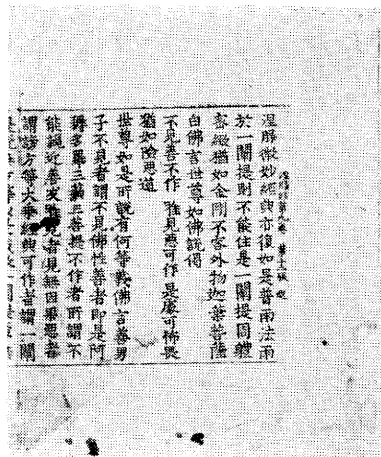 涅槃微妙經典亦復如是普雨法雨
於一闡提則不能住是一闡提固體
密緻猶如金剛不容外物迦葉菩薩
白佛言世尊如佛說偈
不見善不作 唯見惡可作 是處可怖畏
猶如險惡道
世尊如是所說有何等義佛言善男
子不見者謂不見佛性善者即是阿
耨多羅三藐三菩提不作者所謂不
能親近善友 見者見無因果惡者
謂謗方等大乘經典可作者謂一闡